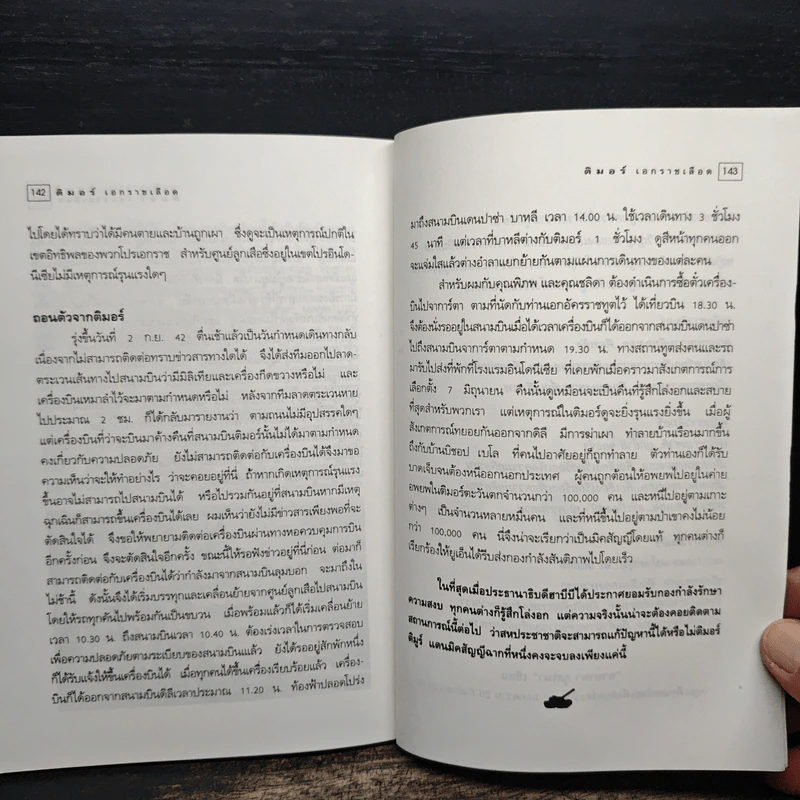 142 ติมอร์ เอกราชเลือด
ไปโดยได้ทราบว่าได้มีคนตายและบ้านถูกเผา ซึ่งดูจะเป็นเหตุการณ์ปกติใน
เขตอิทธิพลของพวกโปรเอกราช สำหรับศูนย์ลูกเสือซึ่งอยู่ในเขตโปรอินโด-
นีเซียไม่มีเหตุการณ์รุนแรงใดๆ
ถอนตัวจากติมอร์
รุ่งขึ้นวันที่ 2 ก.ย. 42 ตื่นเช้าแล้วเป็นวันกำหนดเดินทางกลับ
เนื่องจากไม่สามารถติดต่อทราบข่าวสารทางใดได้ จึงได้ส่งทีมออกไปลาด-
ตระเวนเส้นทางไปสนามบินว่ามีมิลิเทียและเครื่องกีดขวางหรือไม่ และ
เครื่องบินเหมาลำไว้จะมาตามกำหนดหรือไม่ หลังจากทีมลาดตระเวนหาย
ไปประมาณ 2 ชม. ก็ได้กลับมารายงานว่า ตามถนนไม่มีอุปสรรคใดๆ
แต่เครื่องบินที่ว่าจะบินมาค้างคืนที่สนามบินติมอร์นั้นไม่ได้มาตามกำหนด
คงเกี่ยวกับความปลอดภัย ยังไม่สามารถติดต่อกับเครื่องบินได้จึงมาขอ
ความเห็นว่าจะให้ทำอย่างไร ว่าจะคอยอยู่ที่นี่ ถ้าหากเกิดเหตุการณ์รุนแรง
ขึ้นอาจไม่สามารถไปสนามบินได้ หรือไปรวมกันอยู่ที่สนามบินหากมีเหตุ
ฉุกเฉินก็สามารถขึ้นเครื่องบินได้เลย ผมเห็นว่ายังไม่มีข่าวสารเพียงพอที่จะ
ตัดสินใจได้ จึงขอให้พยายามติดต่อเครื่องบินผ่านทางหอควบคุมการบิน
อีกครั้งก่อน จึงจะตัดสินใจอีกครั้ง ขณะนี้ให้รอฟังข่าวอยู่ที่นี่ก่อน ต่อมาก็
สามารถติดต่อกับเครื่องบินได้ว่ากำลังมาจากสนามบินลุมบอก จะมาถึงใน
ไม่ช้านี้ ดังนั้นจึงได้เริ่มบรรทุกและเคลื่อนย้ายจากศูนย์ลูกเสือไปสนามบิน
โดยให้รถทุกคันไปพร้อมกันเป็นขบวน เมื่อพร้อมแล้วก็ได้เริ่มเคลื่อนย้าย
เวลา 10.30 น. ถึงสนามบินเวลา 10.40 น. ต้องเร่งเวลาในการตรวจสอบ
เพื่อความปลอดภัยตามระเบียบของสนามบินแล้ว ยังได้รออยู่สักพักหนึ่ง
ก็ได้รับแจ้งให้ขึ้นเครื่องบินได้ เมื่อทุกคนได้ขึ้นเครื่องเรียบร้อยแล้ว เครื่อง-
บินก็ได้ออกจากสนามบินดิลีเวลาประมาณ 11.20 น. ท้องฟ้าปลอดโปร่ง
ติมอร์ เอกราชเลือด 143
มาถึงสนามบินเดนปาซ่า บาหลี เวลา 14.00 น. ใช้เวลาเดินทาง 3 ชั่วโมง
45 นาที แต่เวลาที่บาหลีต่างกับติมอร์ 1 ชั่วโมง ดูสีหน้าทุกคนออก
จะแจ่มใสแล้วต่างอำลาแยกย้ายกันตามแผนการเดินทางของแต่ละคน
สำหรับผมกับคุณพิภพ และคุณชลิดา ต้องดำเนินการซื้อตั๋วเครื่อง-
บินไปจาการ์ตา ตามที่นัดกับท่านเอกอัครราชทูตไว้ ได้เที่ยวบิน 18.30 น.
จึงต้องนั่งรออยู่ในสนามบินเมื่อได้เวลาเครื่องบินก็ได้ออกจากสนามบินเดนปาซ่า
ไปถึงสนามบินจาการ์ตาตามกำหนด 19.30 น. ทางสถานทูตส่งคนและรถ
มารับไปส่งที่พักที่โรงแรมอินโดนีเซีย ที่เคยพักเมื่อคราวมาสังเกตการณ์การ
เลือกตั้ง 7 มิถุนายน คืนนั้นดูเหมือนจะเป็นคืนที่รู้สึกโล่งอกและสบาย
ที่สุดสำหรับพวกเรา แต่เหตุการณ์ในติมอร์ดูจะยิ่งรุนแรงยิ่งขึ้น เมื่อผู้
สังเกตการณ์ทยอยกันออกจากดิลี มีการฆ่าเผา ทำลายบ้านเรือนมากขึ้น
ถึงกับบ้านบิชอป เบโล ที่คนไปอาศัยอยู่ก็ถูกทำลาย ตัวท่านเองก็ได้รับ
บาดเจ็บจนต้องหนีออกนอกประเทศ ผู้คนถูกต้อนให้อพยพไปอยู่ในค่าย
อพยพในติมอร์ตะวันตกจำนวนกว่า 100,000 คน และหนีไปอยู่ตามเกาะ
ต่างๆ เป็นจำนวนหลายหมื่นคน และที่หนีขึ้นไปอยู่ตามป่าเขาคงไม่น้อย
กว่า 100,000 คน นี่จึงน่าจะเรียกว่าเป็นมิคสัญญีโดยแท้ ทุกคนต่างก็
เรียกร้องให้ยูเอ็นได้รีบส่งกองกำลังสันติภาพไปโดยเร็ว
ในที่สุดเมื่อประธานาธิบดีฮาบีบีได้ประกาศยอมรับกองกำลังรักษา
ความสงบ ทุกคนต่างก็รู้สึกโล่งอก แต่ความจริงนั้นน่าจะต้องคอยติดตาม
สถานการณ์นี้ต่อไป ว่าสหประชาชาติจะสามารถแก้ปัญหานี้ได้หรือไม่ติมอร์
ติมูร์ แดนมิคสัญญีฉากที่หนึ่งคงจะจบลงเพียงแค่นี้